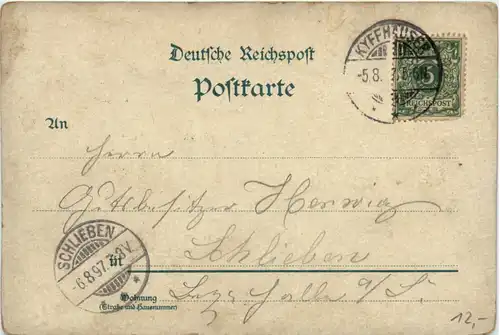 Deutsche Reichspost
Postkarte
KYFFHÄUSER
-5.8.97
5
REICHSPOST
An
Herrn
Gutsbesitzer Herwig
Schlieben
SCHLIEBEN
6.8.97.
in
Wohnung
(Straße und Hausnummer)
Bez. Halle a/S.
12,-